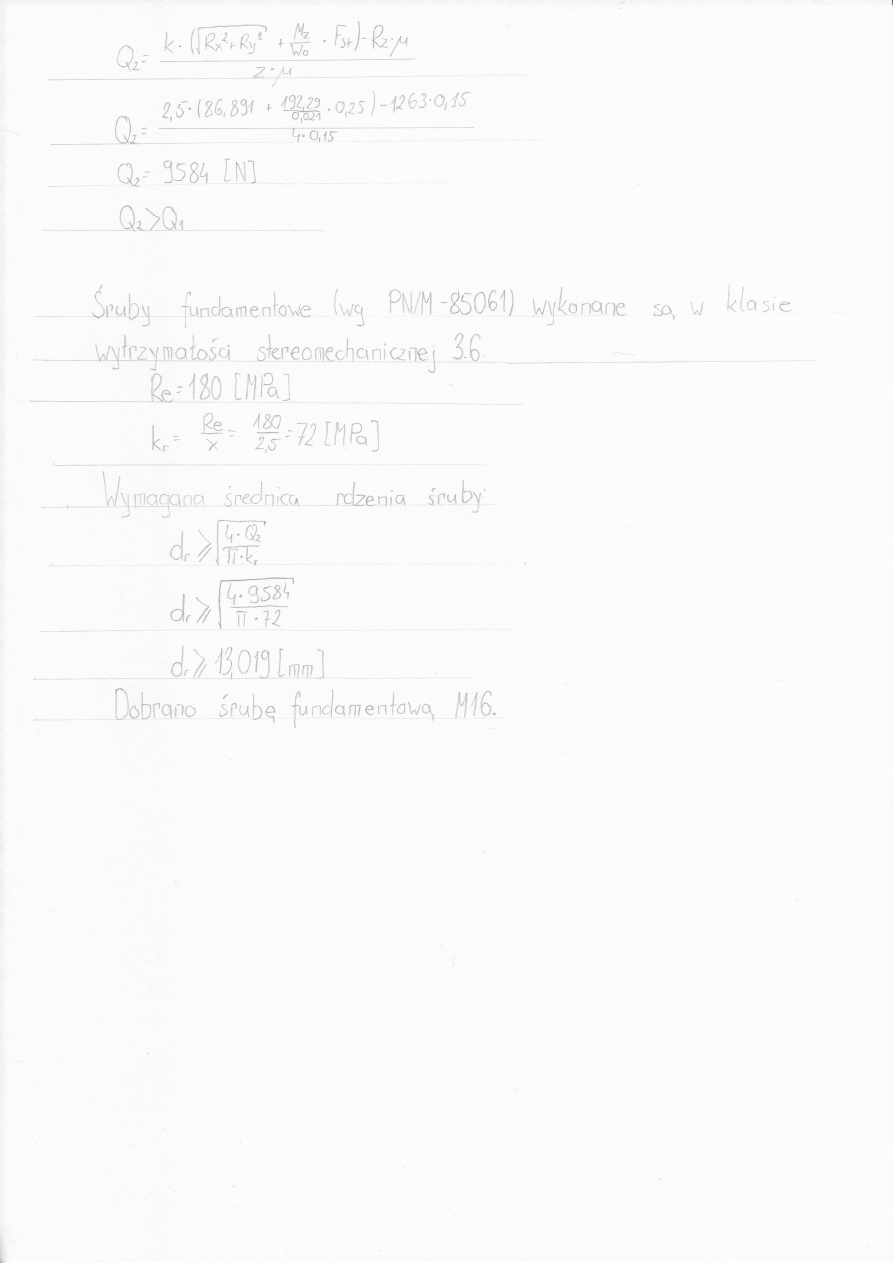 Q₂ = (k·(√(Rx²+Ry²) + Mz/Wo · Fst) - Rz·μ) / (z·μ)
Q₂ = (2,5·(86,891 + 192,29/0,021 · 0,25) - 1263·0,15) / (4·0,15)
Q₂ = 9584 [N]
Q₂ > Q₁
Śruby fundamentowe (wg PN/M-85061) wykonane są w klasie
wytrzymałości stereomechanicznej 3.6.
Re = 180 [MPa]
kr = Re/x = 180/2,5 = 72 [MPa]
Wymagana średnica rdzenia śruby:
dr ⩾ √(4·Q₂ / π·kr)
dr ⩾ √(4·9584 / π·72)
dr ⩾ 13,019 [mm]
Dobrano śrubę fundamentową M16.